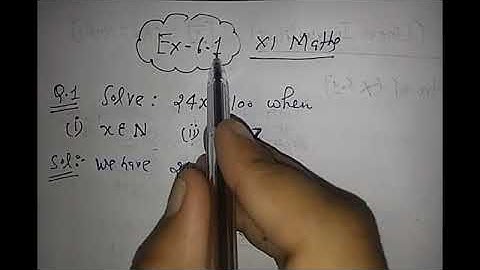 Ex-6.1 XI Maths
Q.1 Solve: 24x 100 when
(i) x∈N (ii) Z
Sol:- We have 2